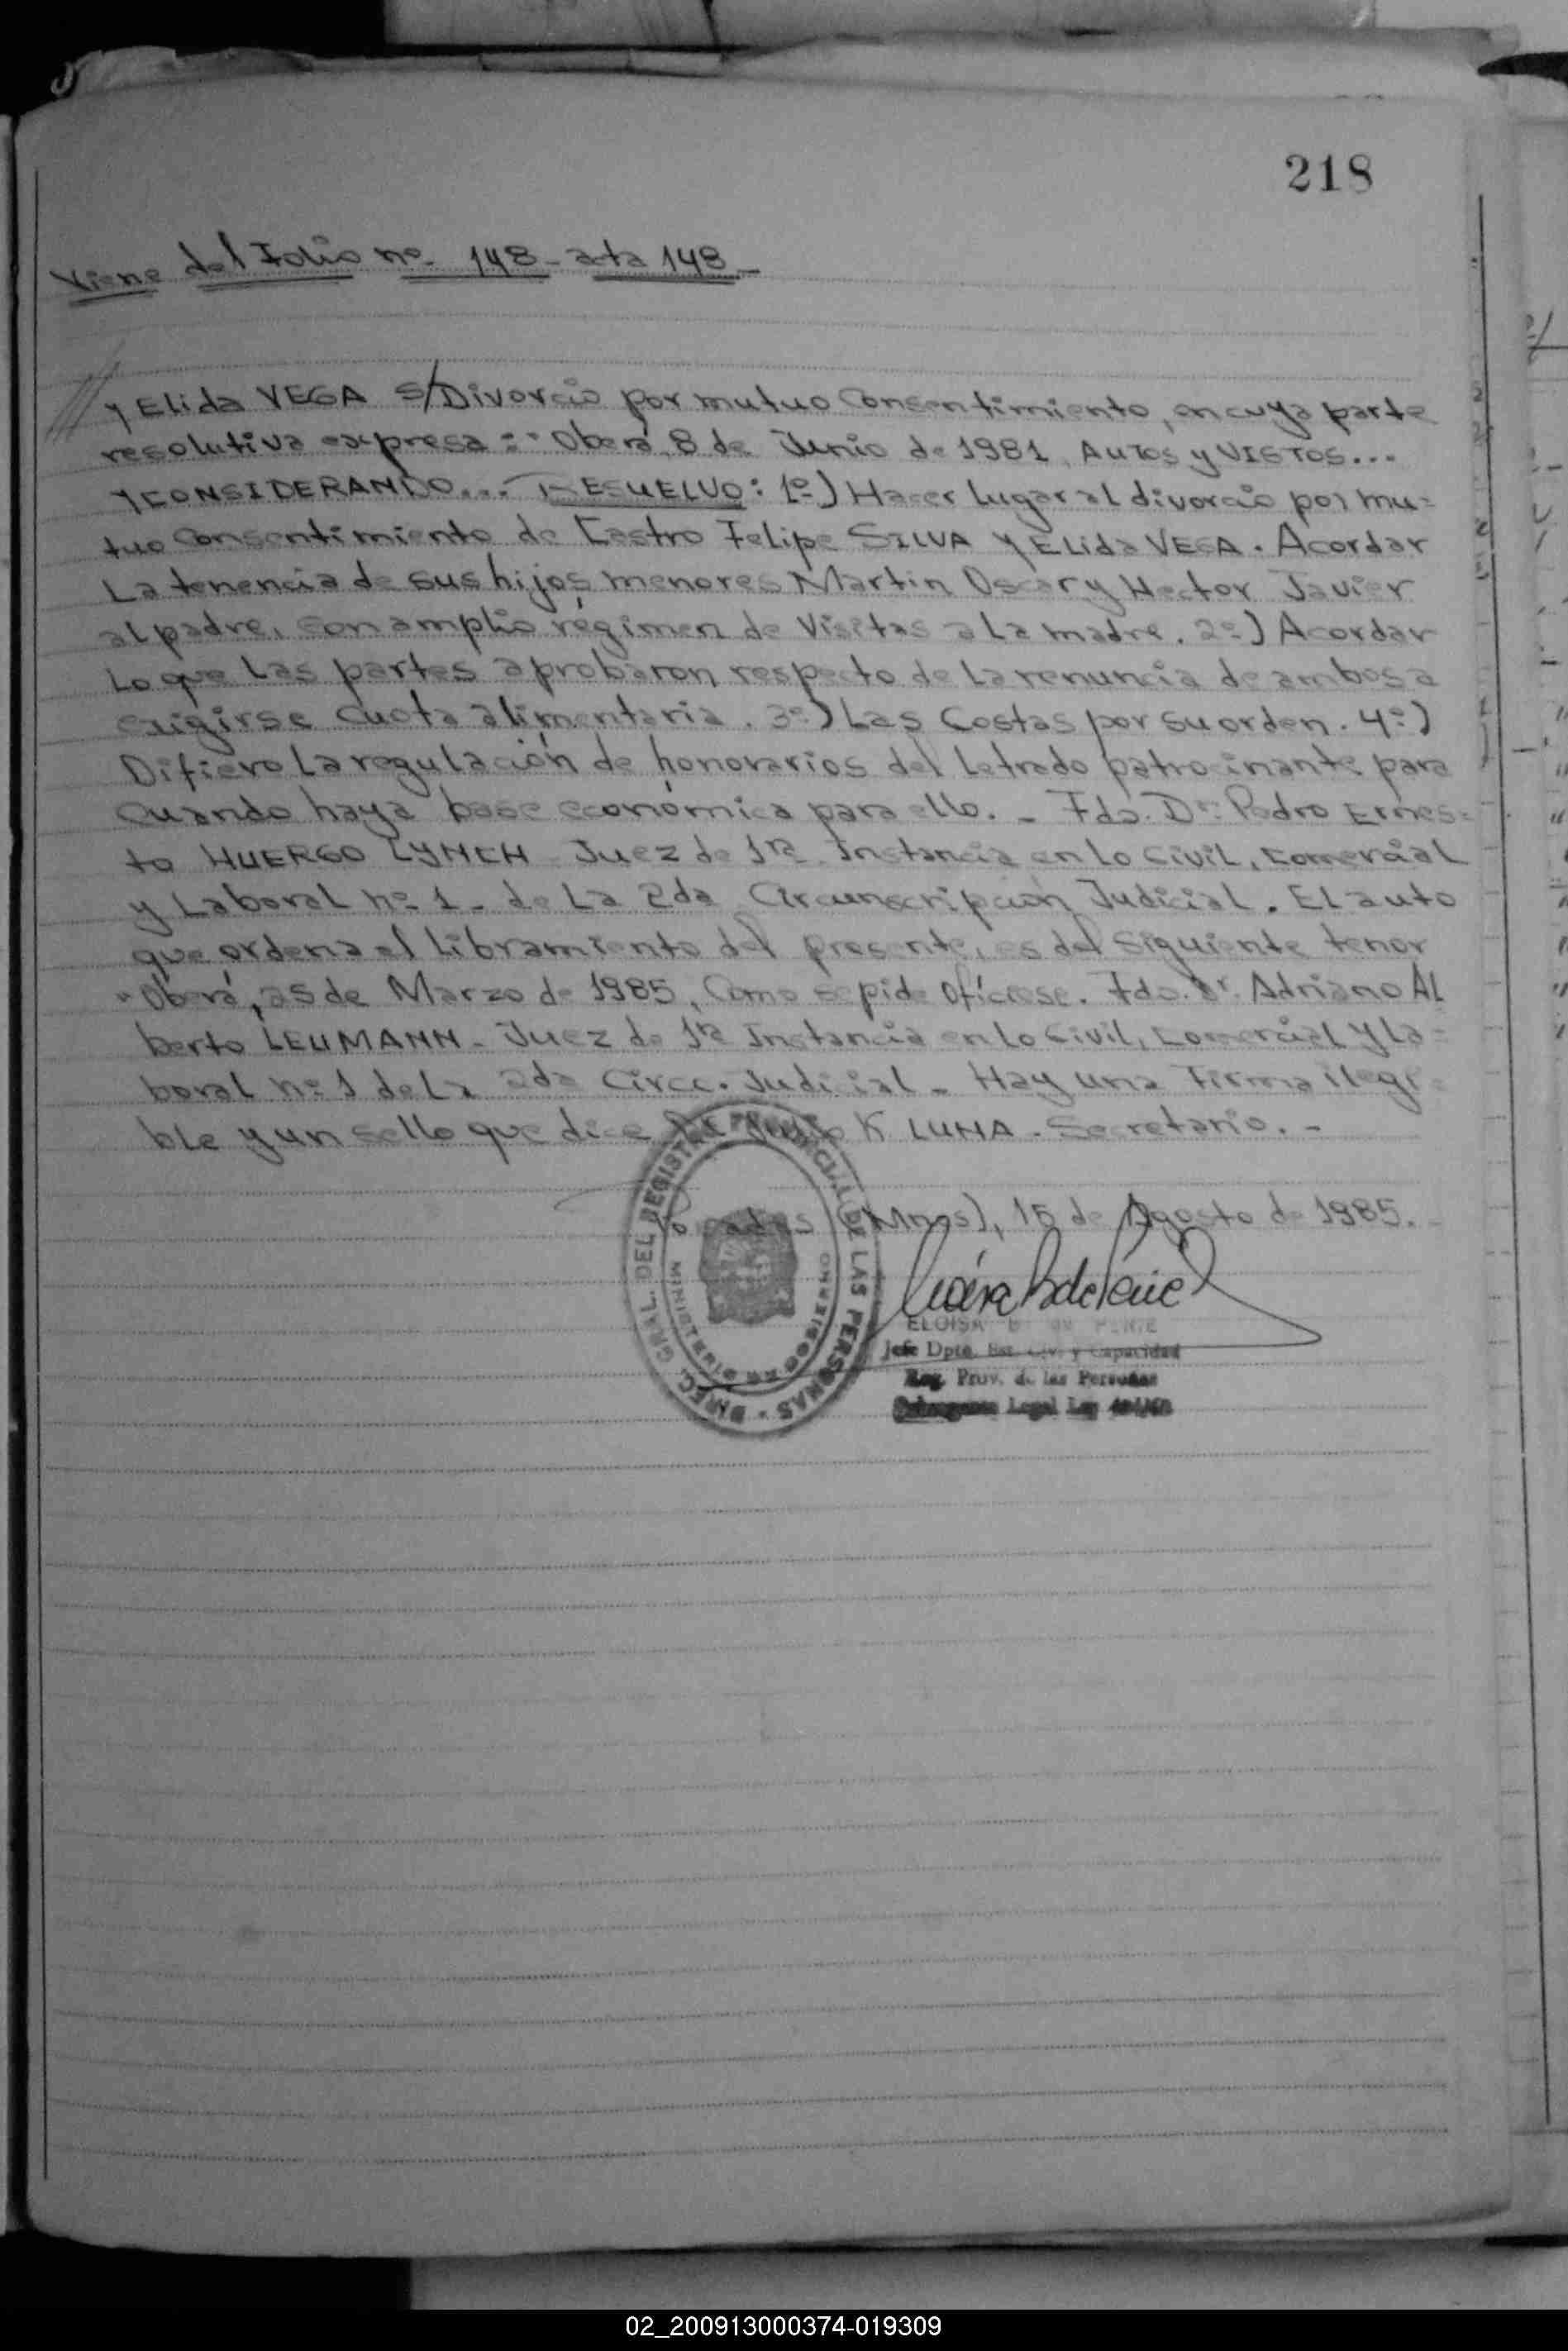 218
Viene del Folio nº 148 - acta 148 -
y Elida VEGA s/Divorcio por mutuo Consentimiento, en cuya parte
resolutiva expresa: "Oberá, 8 de Junio de 1981, AUTOS y VISTOS...
y CONSIDERANDO... RESUELVO: 1º) Hacer lugar al divorcio por mu=
tuo Consentimiento de Castro Felipe SILVA y Elida VEGA. Acordar
La tenencia de sus hijos menores Martin Oscar y Hector Javier
al padre, con amplio régimen de Visitas a la madre. 2º) Acordar
Lo que las partes aprobaron respecto de la renuncia de ambos a
exigirse cuota alimentaria. 3º) Las Costas por su orden. 4º)
Difiero la regulación de honorarios del letrado patrocinante para
cuando haya base económica para ello. - Fdo. Dr. Pedro Ernes=
to HUERGO LYNCH - Juez de 1ra Instancia en lo Civil, Comercial
y Laboral nº 1 - de la 2da Circunscripción Judicial. El auto
que ordena el libramiento del presente, es del siguiente tenor
"Oberá, 25 de Marzo de 1985, Como se pide Ofíciese. Fdo. Dr. Adriano Al
berto LEUMANN - Juez de 1ra Instancia en lo Civil, Comercial y La=
boral nº 1 de la 2da Circc. Judicial - Hay una Firma ilegi=
ble y un sello que dice K LUNA - Secretario. -
(Mnes), 15 de Agosto de 1985.
DIREC. GRAL. DEL REGISTRO PROVINCIAL DE LAS PERSONAS
MINISTERIO DE GOBIERNO
ELOISA
Jefe Dpto. Est. Civ. y Capacidad
Reg. Prov. de las Personas
Legal Ley
02_200913000374-019309